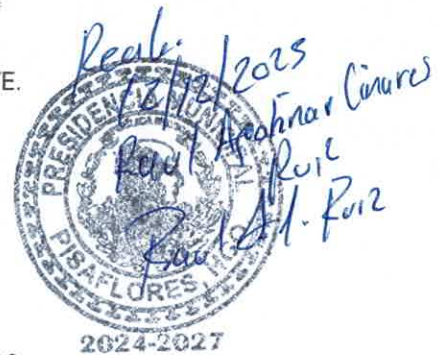 E.
Recibí.
12/12/2025
Raul Apolinar Linares
Ruiz
Raul A L. Ruiz
PRESIDENCIA MUNICIPAL
PISAFLORES, HGO.
2024-2027